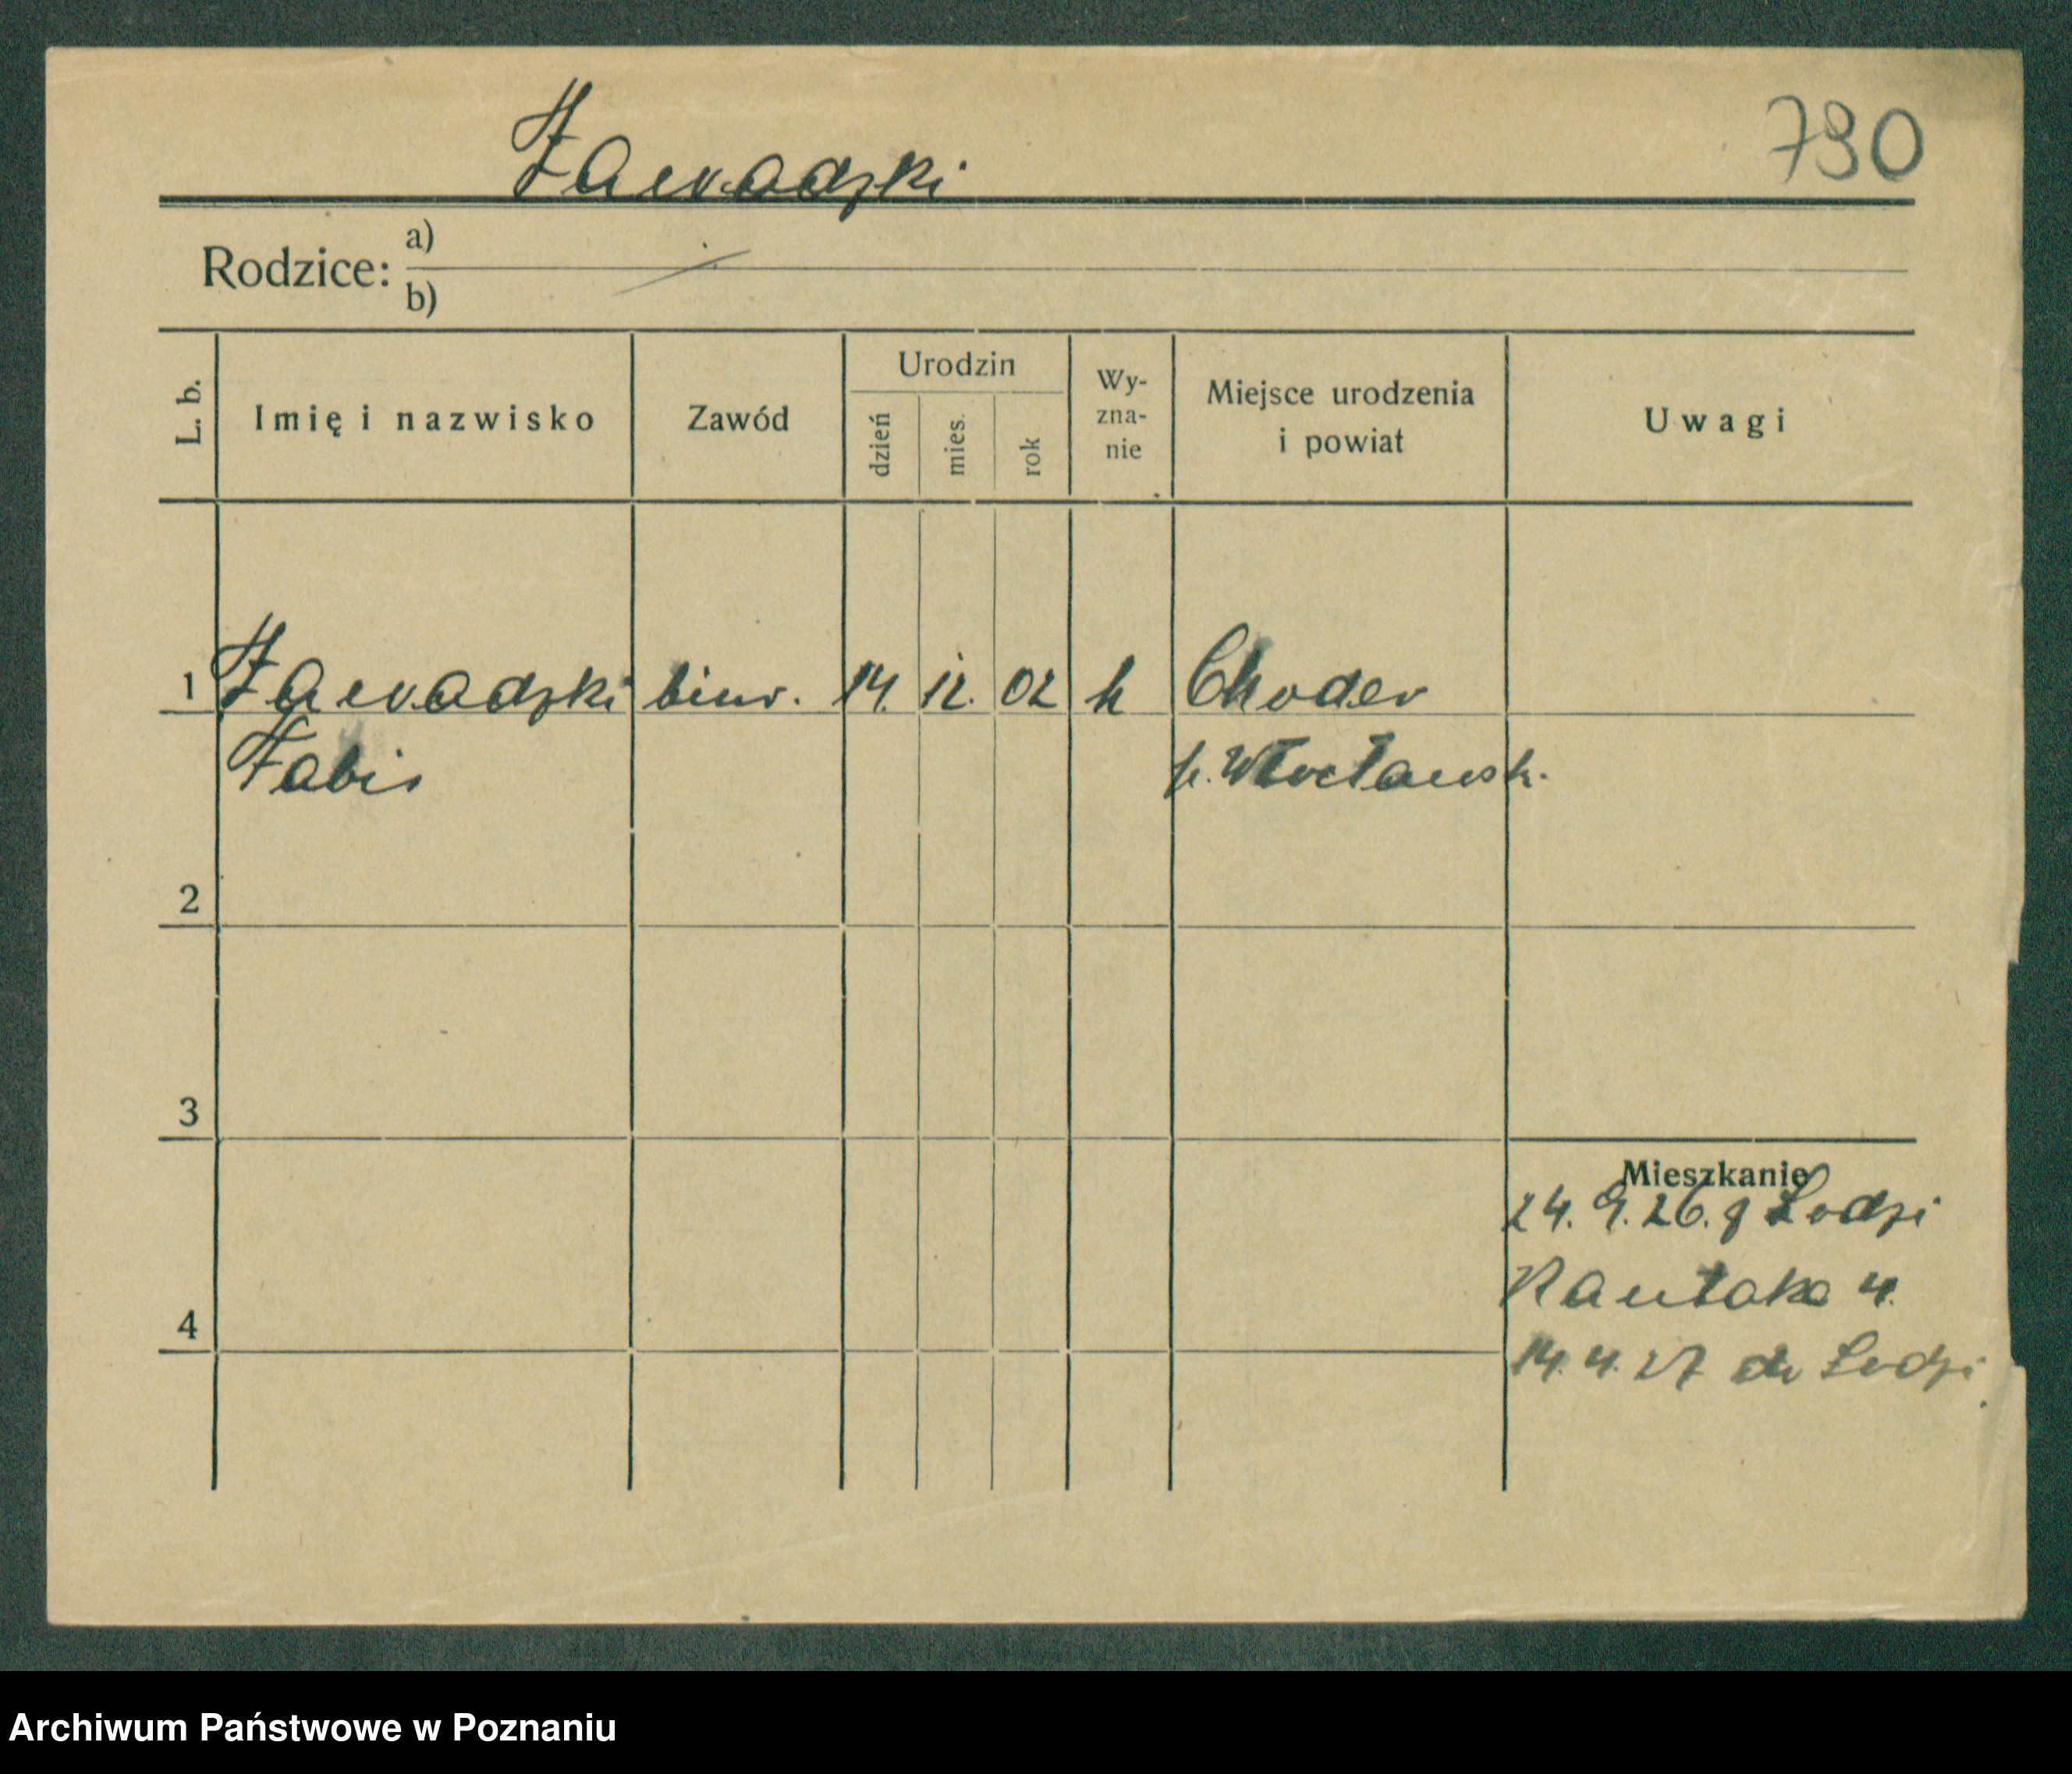 Zawadzki
790
Rodzice: a)
b)
L. b. Imię i nazwisko Zawód Urodzin dzień mies. rok Wy-zna-nie Miejsce urodzenia i powiat Uwagi
1 Zawadzki biur. 14. 12. 02 k Chodev
Fabis p. Włocławsk.
2
3
Mieszkanie
24. 9. 26. z Lodzi
4.
4
14. 4. 27 do Lodzi
Archiwum Państwowe w Poznaniu